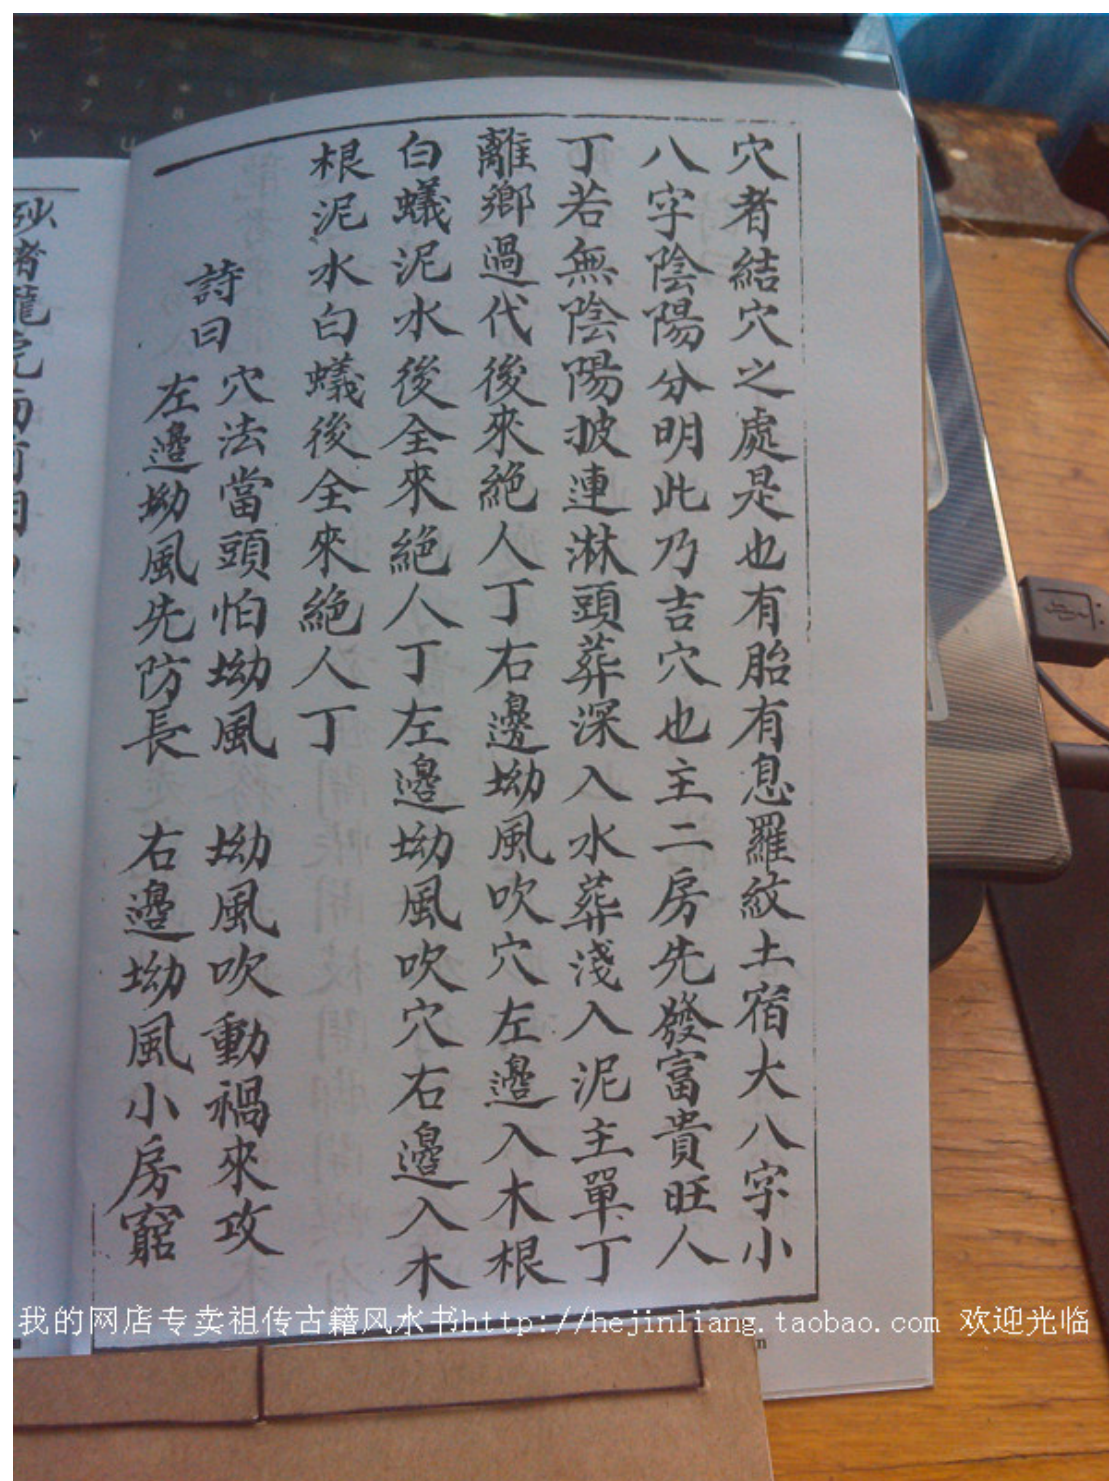 穴者結穴之處是也有胎有息羅紋土宿大八字小
八字陰陽分明此乃吉穴也主二房先發富貴旺人
丁若無陰陽披連淋頭葬深入水葬淺入泥主單丁
離鄉過代後來絕人丁右邊坳風吹穴左邊入木根
白蟻泥水後全來絕人丁左邊坳風吹穴右邊入木
根泥水白蟻後全來絕人丁
詩曰
穴法當頭怕坳風 坳風吹動禍來攻
左邊坳風先防長 右邊坳風小房窮
砂者龍虎
我的网店专卖祖传古籍风水书http://hejinliang.taobao.com 欢迎光临